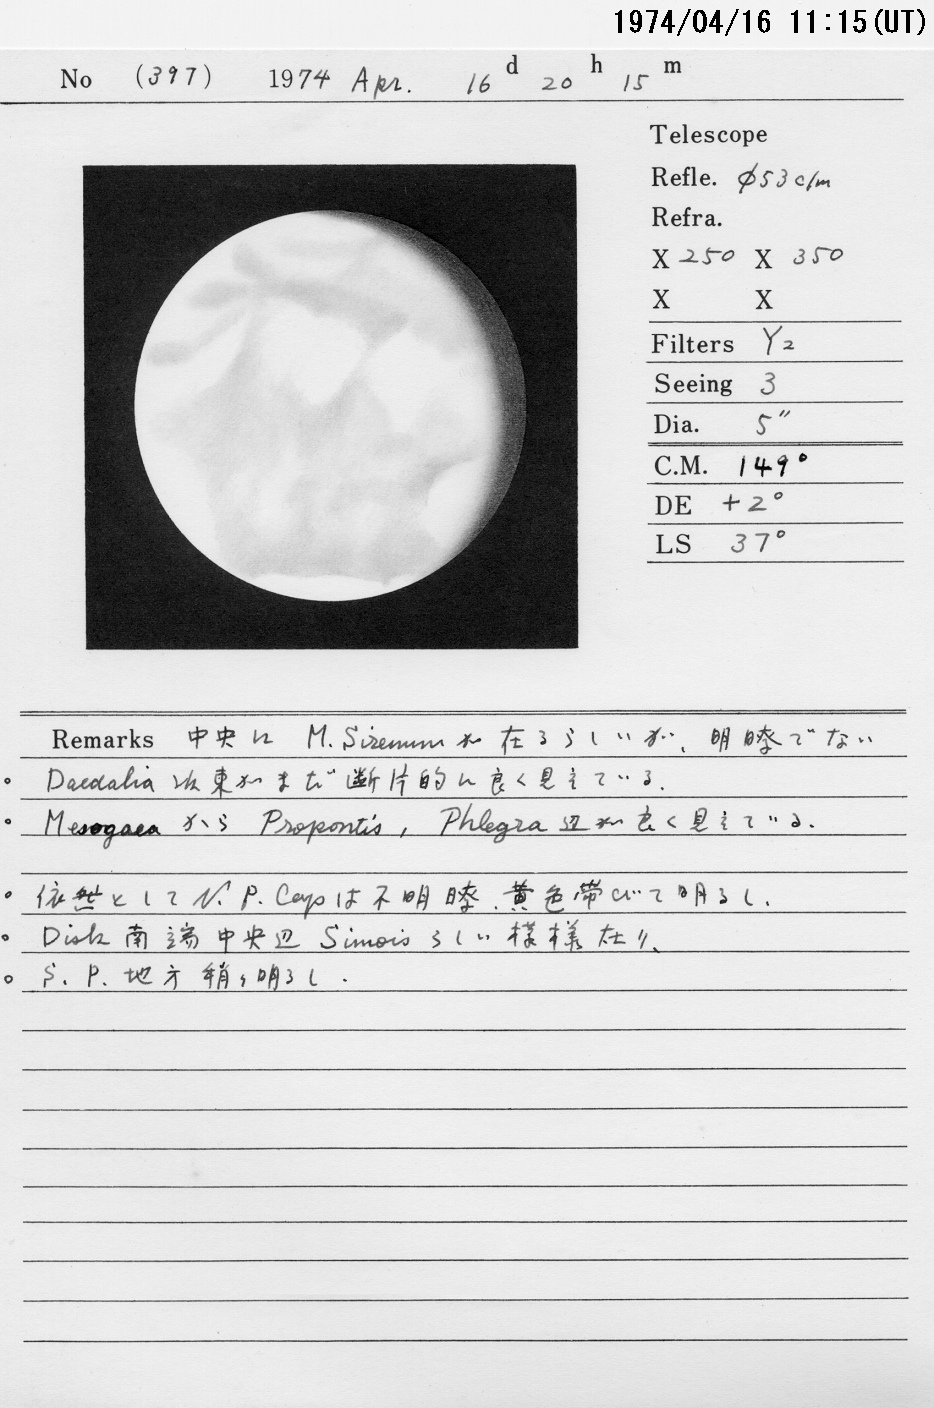 1974/04/16 11:15(UT)
No (397) 1974 Apr. 16 d 20 h 15 m
Telescope
Refle. φ53c/m
Refra.
X 250 X 350
X X
Filters Y2
Seeing 3
Dia. 5″
C.M. 149°
DE +2°
LS 37°
Remarks 中央に M. Sirenum が在るらしいが、明瞭でない
。Daedalia 以東がまだ断片的に良く見えている.
。Mesogaea から Propontis, Phlegra 辺が良く見えている.
。依然として N. P. Capは不明瞭. 黄色帯びて明るし.
。Disk 南端中央辺 Simois らしい模様在り、
。S. P. 地方稍々明るし.